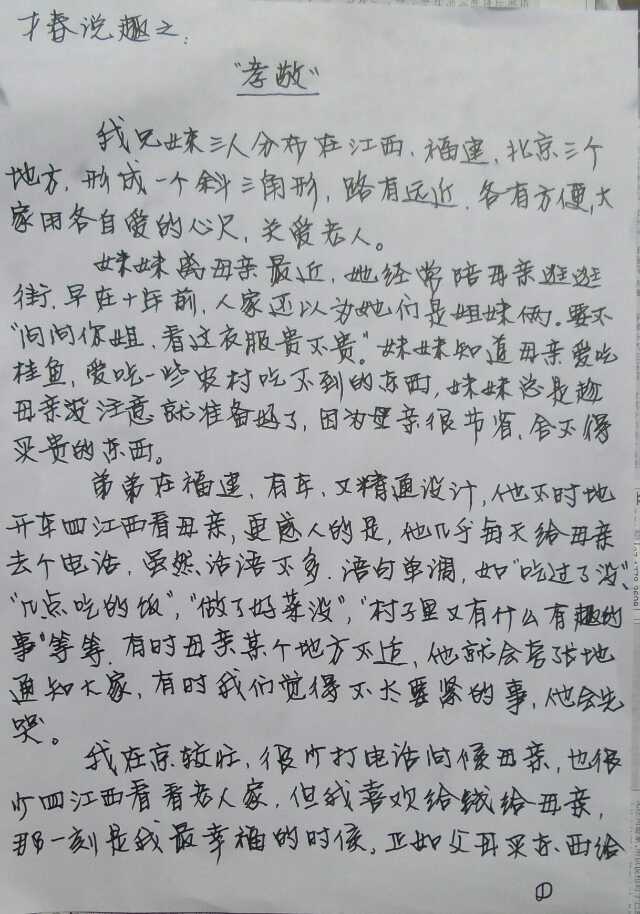 才春说趣之：
"孝敬"
我兄妹三人分布在江西、福建、北京三个
地方，形成一个斜三角形，路有远近，各有方便，大
家用各自爱的心尺，关爱老人。
妹妹离母亲最近，她经常陪母亲逛逛
街，早在十年前，人家还以为她们是姐妹俩。要不
"问问你姐，看这衣服贵不贵。"妹妹知道母亲爱吃
桂鱼，爱吃一些农村吃不到的东西，妹妹总是趁
母亲没注意就准备好了，因为母亲很节省，舍不得
买贵的东西。
弟弟在福建，有车，又精通设计，他不时地
开车回江西看母亲，更感人的是，他几乎每天给母亲
去个电话，虽然话语不多，语句单调，如"吃过了没"、
"几点吃的饭"，"做了好菜没"，"村子里又有什么有趣的
事"等等，有时母亲某个地方不适，他就会夸张地
通知大家，有时我们觉得不太要紧的事，他会先
哭。
我在京较忙，很少打电话问候母亲，也很
少回江西看看老人家，但我喜欢给钱给母亲，
那一刻是我最幸福的时候，正如父母买东西给
①